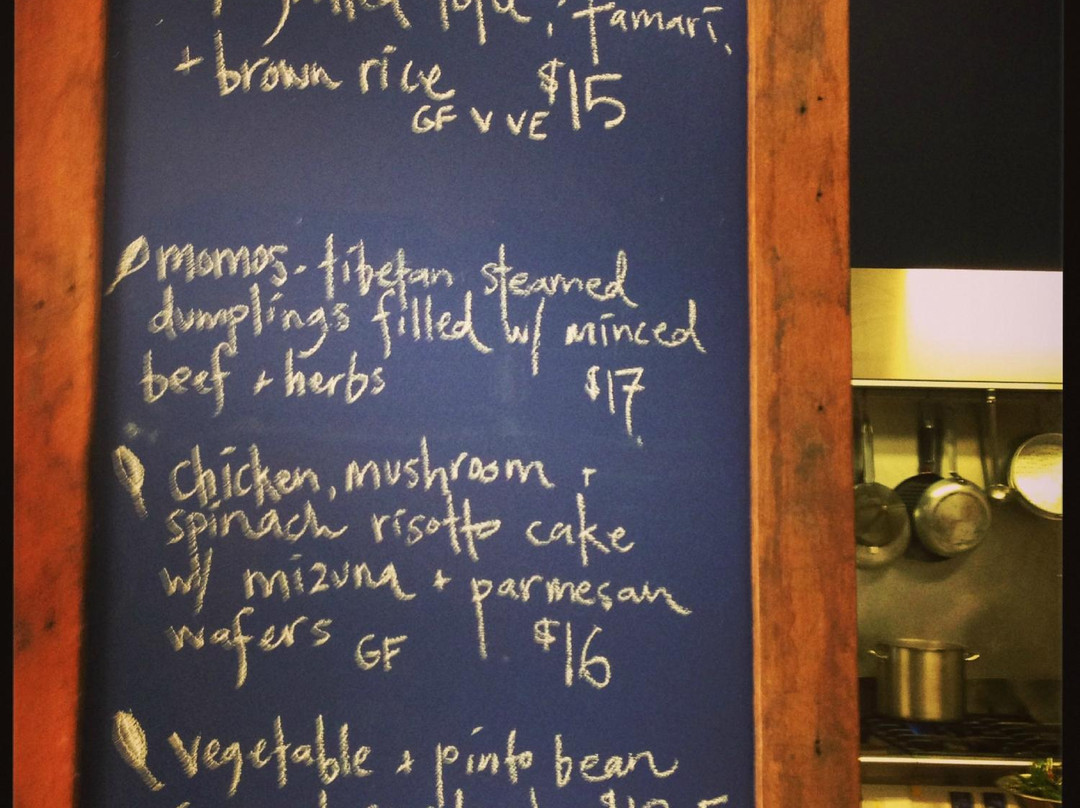 tofu, tamari,
+ brown rice $15
GF V VE
momos - tibetan steamed
dumplings filled w/ minced
beef + herbs $17
chicken, mushroom +
spinach risotto cake
w/ mizuna + parmesan
wafers GF $16
vegetable + pinto bean